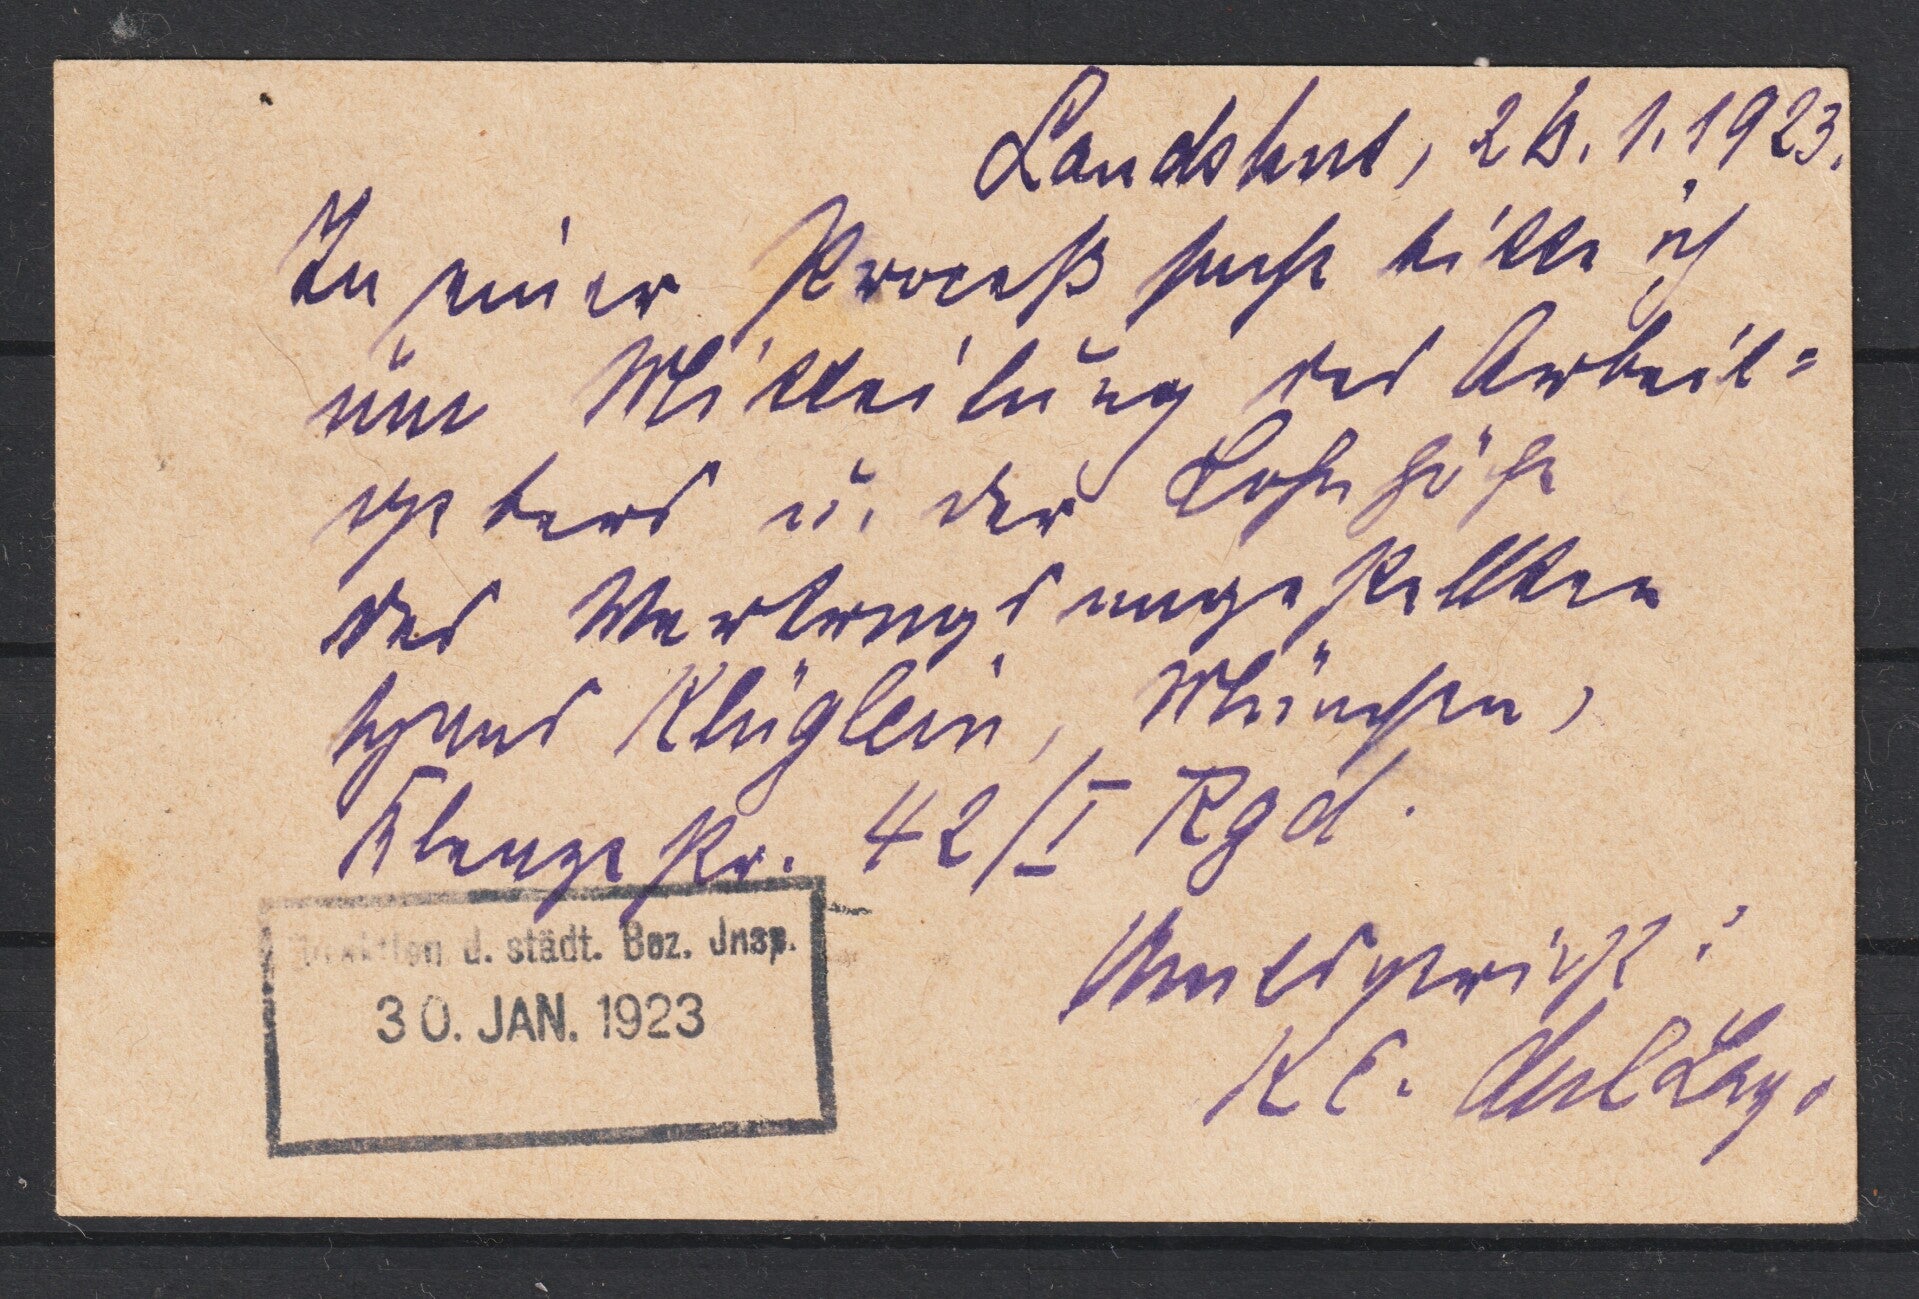 Landshut, 26.1.1923.
In einer Proceßsache bitte ich
um Mitteilung des Arbeit=
gebers u. der Lohnhöhe
des Vertragsangestellten
Hans Klüglein, München,
Klenzestr. 42/I Rgd.
Amtsgericht:
d. städt. Bez. Jnsp.
30. JAN. 1923